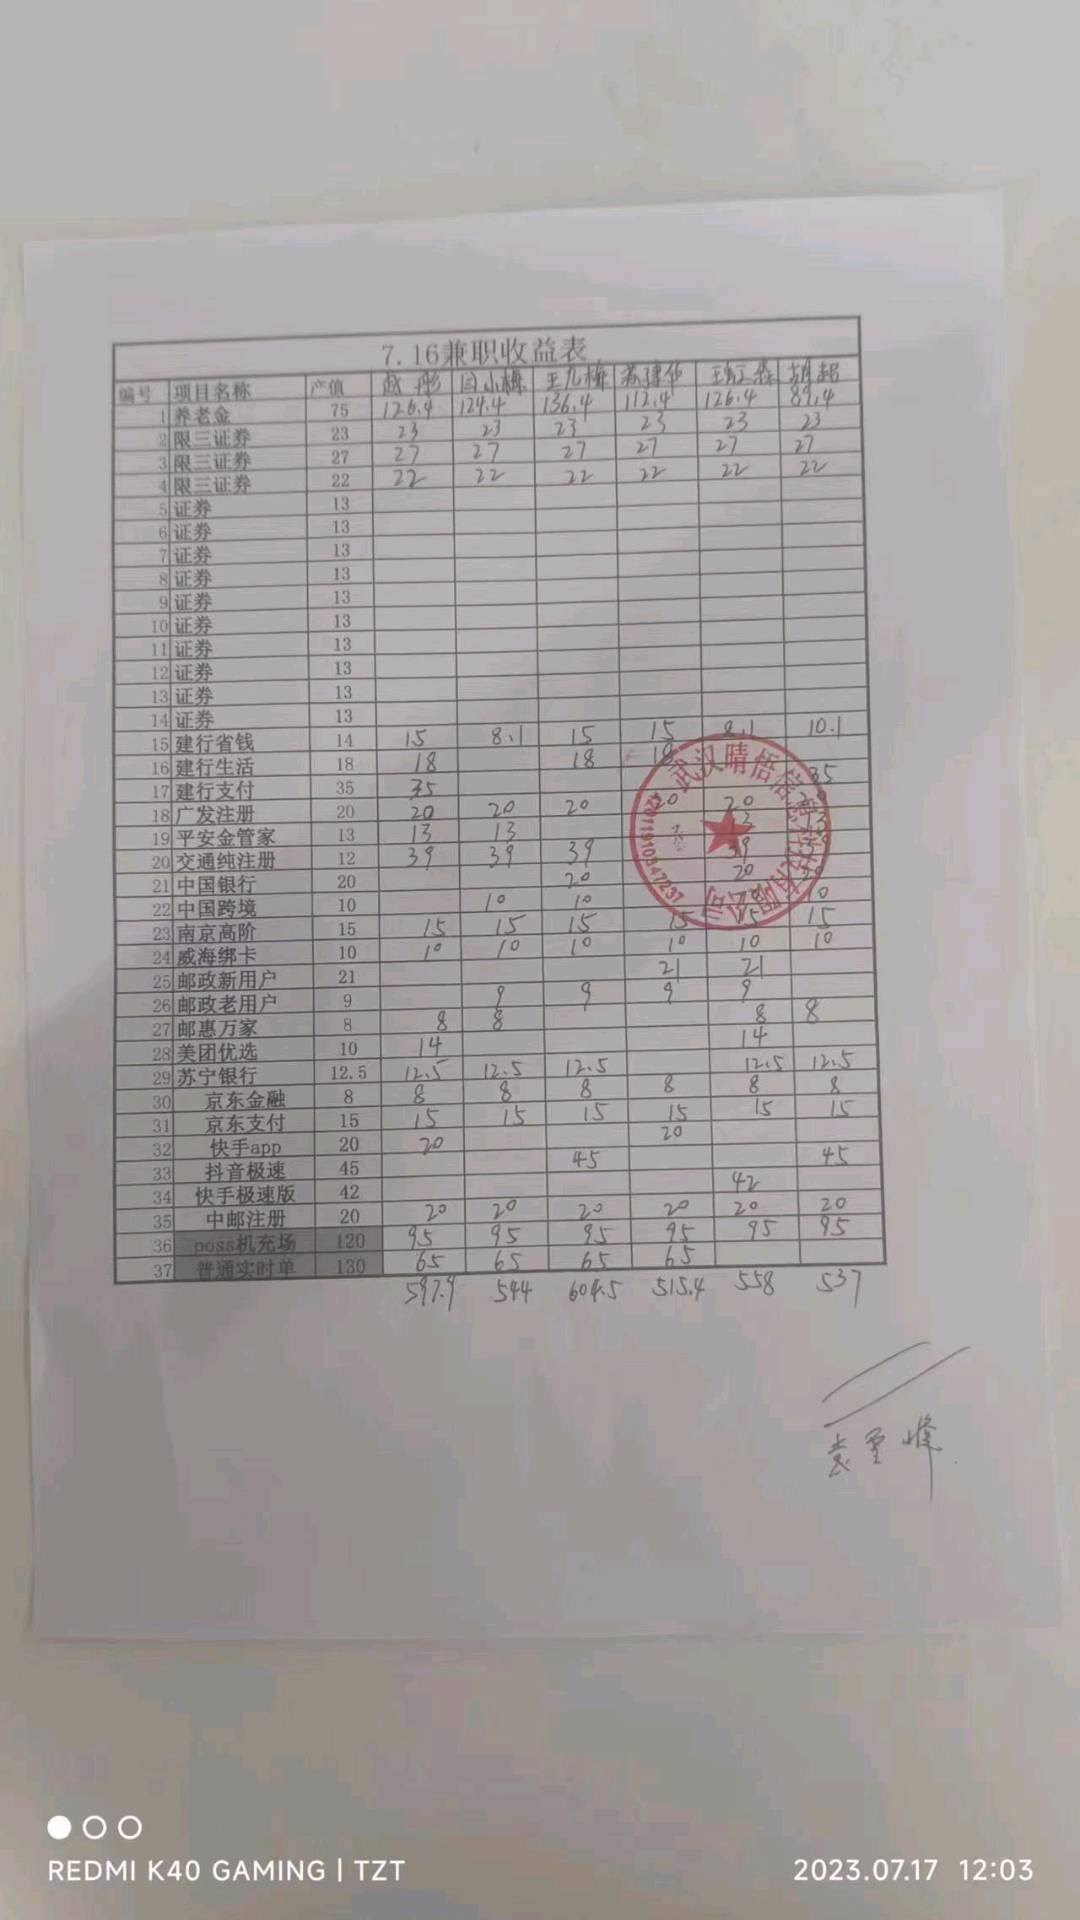 7.16兼职收益表
编号 项目名称 产值
1 养老金 75 126.4 124.4 136.4 112.4 126.4 89.4
2 限三证券 23 23 23 23 23 23 23
3 限三证券 27 27 27 27 27 27 27
4 限三证券 22 22 22 22 22 22 22
5 证券 13
6 证券 13
7 证券 13
8 证券 13
9 证券 13
10 证券 13
11 证券 13
12 证券 13
13 证券 13
14 证券 13
15 建行省钱 14 15 8.1 15 15 8.1 10.1
16 建行生活 18 18 18 18
17 建行支付 35 35 35
18 广发注册 20 20 20 20 20 20
19 平安金管家 13 13 13 13 13
20 交通纯注册 12 39 39 39 39
21 中国银行 20 20 20 20
22 中国跨境 10 10 10 10
23 南京高阶 15 15 15 15 15 15 15
24 威海绑卡 10 10 10 10 10 10 10
25 邮政新用户 21 21 21
26 邮政老用户 9 9 9 9 9
27 邮惠万家 8 8 8 8 8
28 美团优选 10 14 14
29 苏宁银行 12.5 12.5 12.5 12.5 12.5 12.5
30 京东金融 8 8 8 8 8 8 8
31 京东支付 15 15 15 15 15 15 15
32 快手app 20 20 20
33 抖音极速 45 45 45
34 快手极速版 42 42
35 中邮注册 20 20 20 20 20 20 20
36 poss机充场 120 95 95 95 95 95 95
37 普通实时单 130 65 65 65 65
597.9 544 604.5 515.4 558 537
武汉晴悟信息科技有限公司
REDMI K40 GAMING | TZT
2023.07.17 12:03